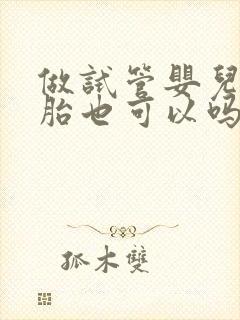 做試管嬰兒
胎也可以吗
孤木雙